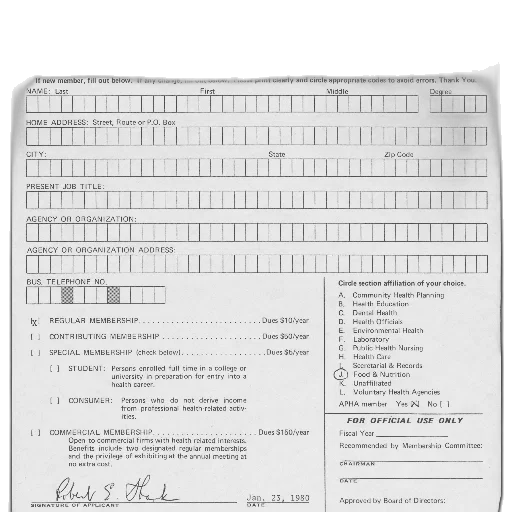 If new member, fill out below. If any change, fill out below. Please print clearly and circle appropriate codes to avoid errors. Thank You.
NAME: Last First Middle Degree
HOME ADDRESS: Street, Route or P.O. Box
CITY: State Zip Code
PRESENT JOB TITLE:
AGENCY OR ORGANIZATION:
AGENCY OR ORGANIZATION ADDRESS:
BUS. TELEPHONE NO.
[x] REGULAR MEMBERSHIP. . . . . . . . . . . . . . . . . . . . . . . . . Dues $10/year
[ ] CONTRIBUTING MEMBERSHIP . . . . . . . . . . . . . . . . . . . . Dues $50/year
[ ] SPECIAL MEMBERSHIP (check below). . . . . . . . . . . . . . . . Dues $5/year
[ ] STUDENT: Persons enrolled full time in a college or
university in preparation for entry into a
health career.
[ ] CONSUMER: Persons who do not derive income
from professional health-related activ-
ities.
[ ] COMMERCIAL MEMBERSHIP. . . . . . . . . . . . . . . . . . . . . Dues $150/year
Open to commercial firms with health related interests.
Benefits include two designated regular memberships
and the privilege of exhibiting at the annual meeting at
no extra cost.
Robert E.
SIGNATURE OF APPLICANT
Jan. 23, 1980
DATE
Circle section affiliation of your choice.
A. Community Health Planning
B. Health Education
C. Dental Health
D. Health Officials
E. Environmental Health
F. Laboratory
G. Public Health Nursing
H. Health Care
I. Secretarial & Records
J. Food & Nutrition
K. Unaffiliated
L. Voluntary Health Agencies
APHA member Yes [x] No [ ]
FOR OFFICIAL USE ONLY
Fiscal Year
Recommended by Membership Committee:
CHAIRMAN
DATE
Approved by Board of Directors: